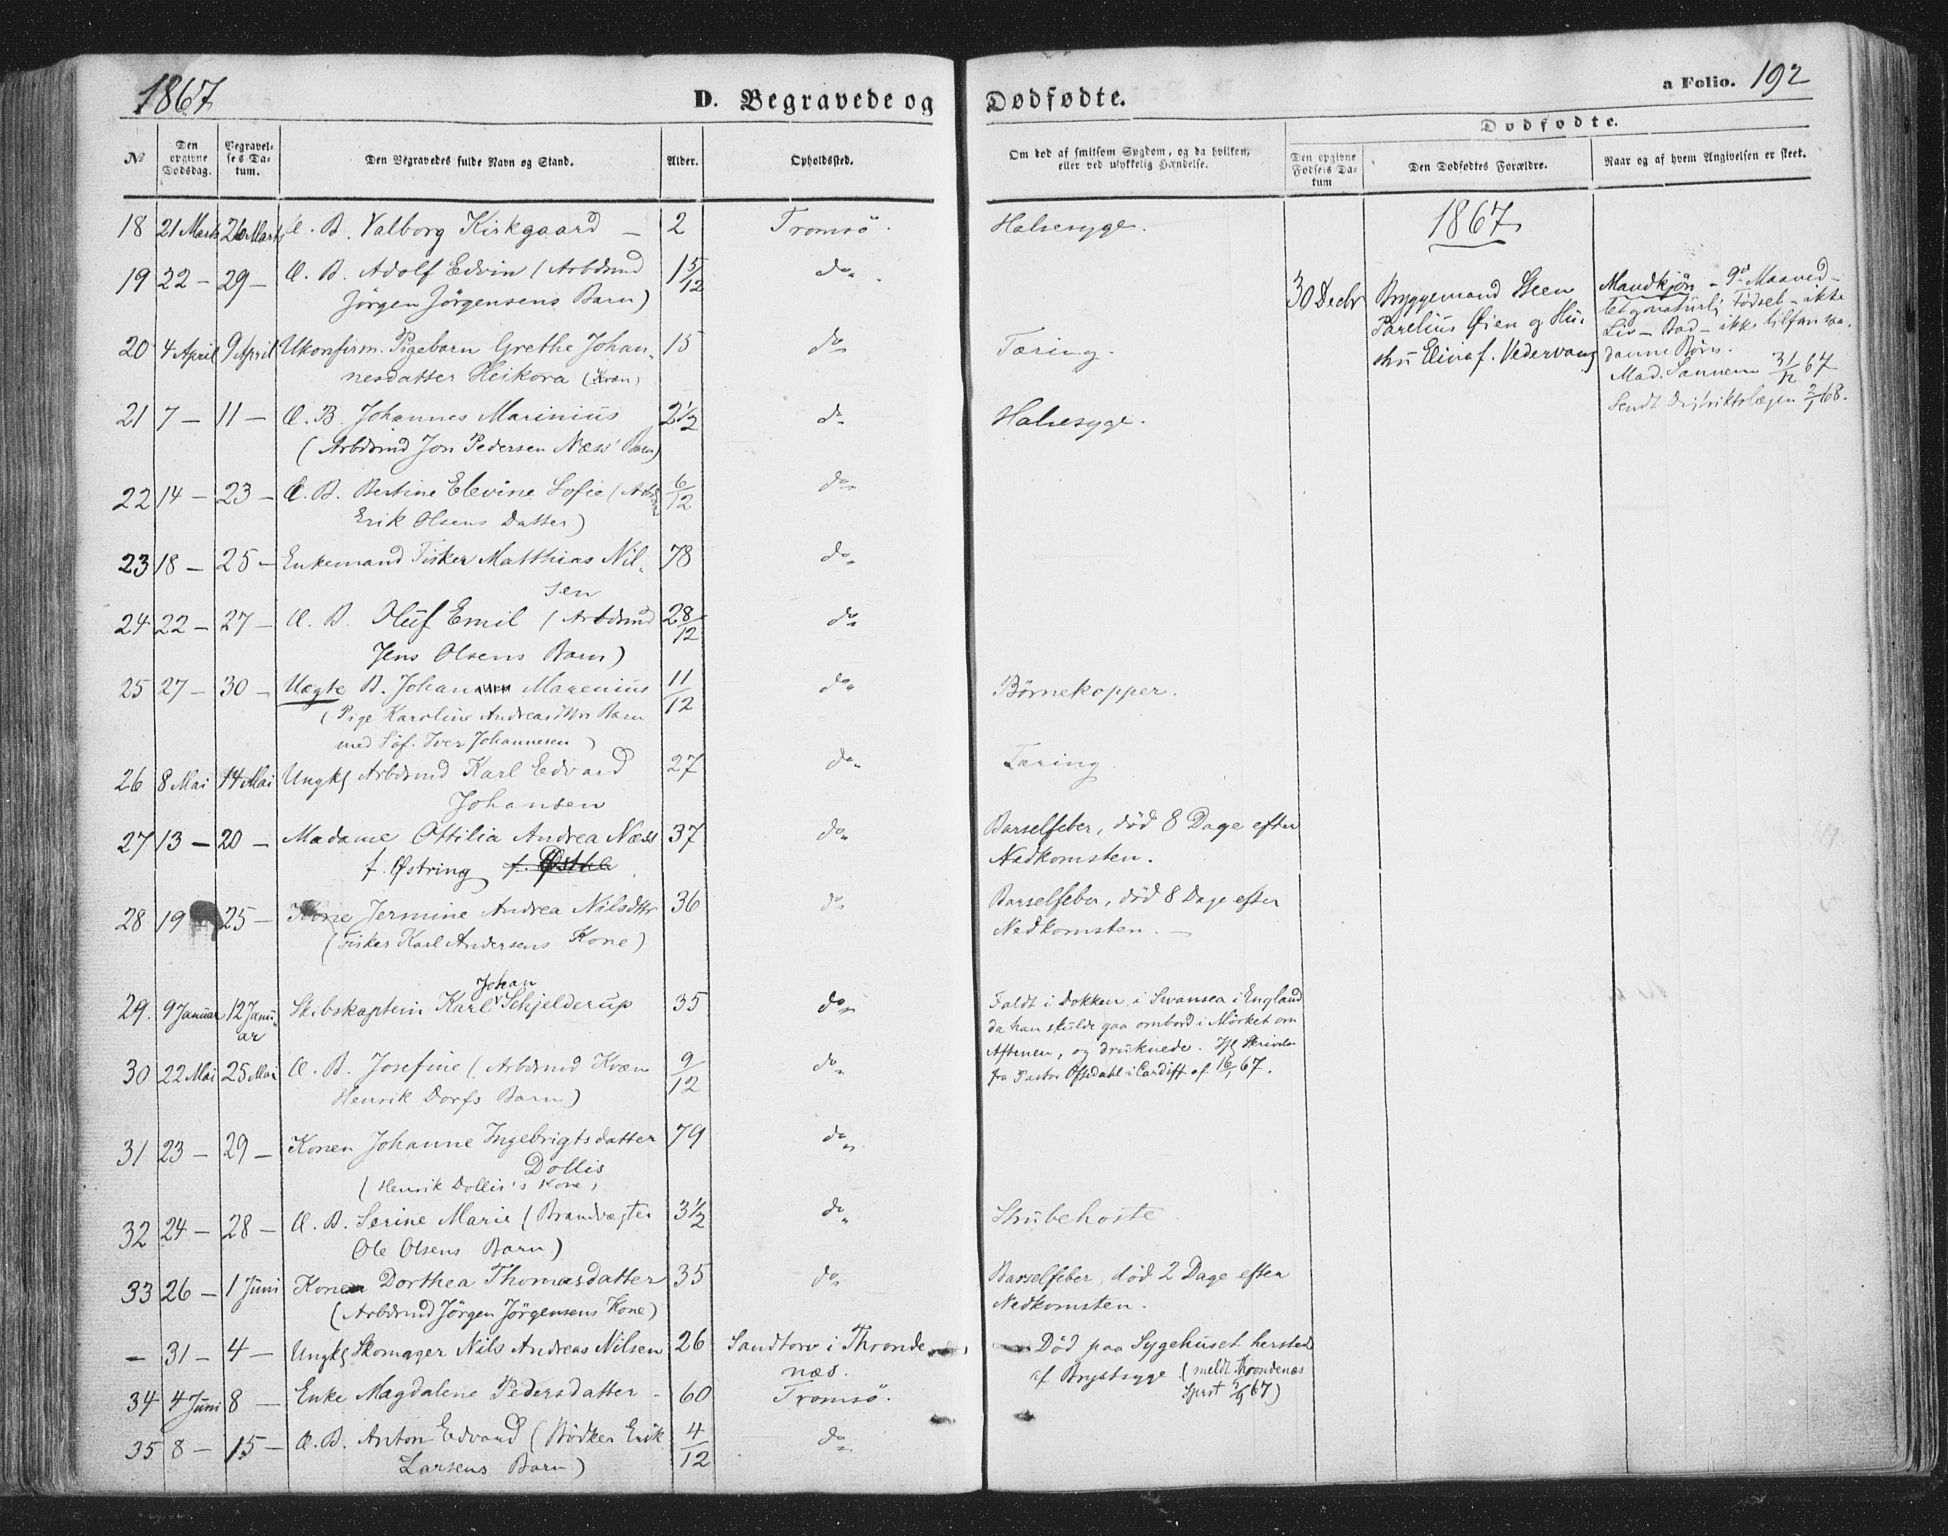 1867
D. Begravede og Dødfødte.
a Folio. 192
No
Den opgivne Dødsdag.
Begravelses Datum.
Den Begravedes fulde Navn og Stand.
Alder.
Opholdssted.
Om død af smitsom Sygdom, og da hvilken, eller ved ulykkelig Hændelse.
Dødfødte.
Den opgivne Fødsels Datum
Den Dødfødtes Forældre.
Naar og af hvem Angivelsen er skeet.
18 21 Marts 26 Marts Æ. B. Valborg Kirkgaard — 2 Tromsö. Halsesyge.
19 22 — 29 — Æ. B. Adolf Edvin (Arbdsmd 1 5/12 do
Jörgen Jörgensens Barn)
20 4 April 9 April Ukonfirm. Pigebarn Grethe Johan- 15 do Tæring.
nesdatter Heikora (Kvæn)
21 7 — 11 — Æ. B. Johannes Marinius 2 1/2 do Halsesyge.
(Arbdsmd Jon Pedersen Næss' Barn)
22 14 — 23 — Æ. B. Bertine Elevine Sofie (Arbdsmd 6/12 do
Erik Olsens Datter)
23 18 — 25 — Enkemand Fisker Matthias Nil- 78 do
sen
24 22 — 27 — Æ. B. Oluf Emil (Arbdsmd 28/12 do
Jens Olsens Barn)
25 27 — 30 — Uægte B. Johan Marenius 11/12 do Börnekopper.
(Pige Karoline Andreasdttrs Barn
med Söf. Iver Johannesen)
26 8 Mai 14 Mai Ungkl Arbdsmd Karl Edvard 27 do Tæring
Johansen
27 13 — 20 — Madame Ottilia Andrea Næss 37 do Barselfeber, död 8 Dage efter
f. Østring Nedkomsten.
28 19 25 — Kone Jermine Andrea Nilsdttr 36 do Barselfeber, död 8 Dage efter
(Fisker Karl Andersens Kone) Nedkomsten. —
Johan
29. 9 Januar 12 Janu- Skibskaptein Karl Schjelderup 35 do Faldt i Dokken i Swansea i England
ar da han skulde gaa ombord i Mörket om
Aftenen, og druknede. Ifl Skrivelse
30 22 Mai 25 Mai Æ. B. Josefine (Arbdsmd Kvæn 9/12 do fra Pastor Oftedahl i Cardiff af 16/1 67.
Henrik Dorfs Barn)
31 23 — 29 — Konen Johanne Ingebrigtsdatter 79 do
Dollis
(Henrik Dollis's Kone)
32 24 — 28 — Æ. B. Serine Marie (Brandvægter 3 1/2 do Strubehoste
Ole Olsens Barn)
33 26 — 1 Juni Kone Dorthea Thomasdatter 35 do Barselfeber, död 2 Dage efter
(Arbdsmd Jörgen Jörgensens Kone) Nedkomsten.
— 31 — 4 — Ungkl Skomager Nils Andreas Nilsen 26 Sandtorv i Thronde- Död paa Sygehuset hersteds
næs. af Brystsyge (meldt Throndenæs
34 4 Juni 8 — Enke Magdalene Pedersdatter 60 Tromsö. Sprst 67)
35 8 — 15 — Æ. B. Anton Edvard (Bödker Erik 4/12 do
Larsens Barn)
1867
30 Decbr Bryggemand Steen
Parelius Öien og Hu-
stru Elina f. Vedervang
Mandkjön — 9d Maaned —
naturlig Födsel — ikke
Liv — Bad — ikke tilfar vaa-
danne Börn.
Mad. Sannem 31/12 67
Sendt Distriktslægen 2/1 68.